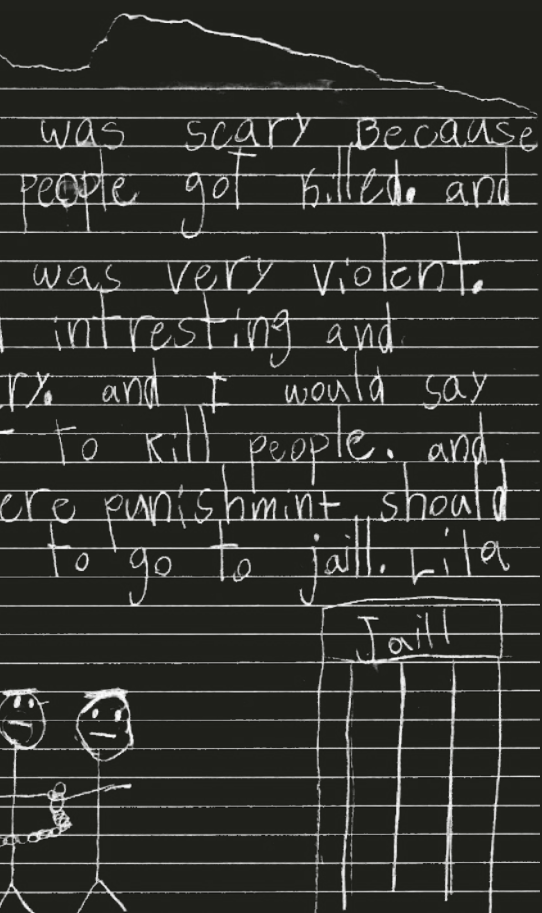 was scary Because
people got killed. and
was very violent.
intresting and
ry. and I would say
to kill people. and
ere punishmint should
to go to jaill. Lila
Jaill